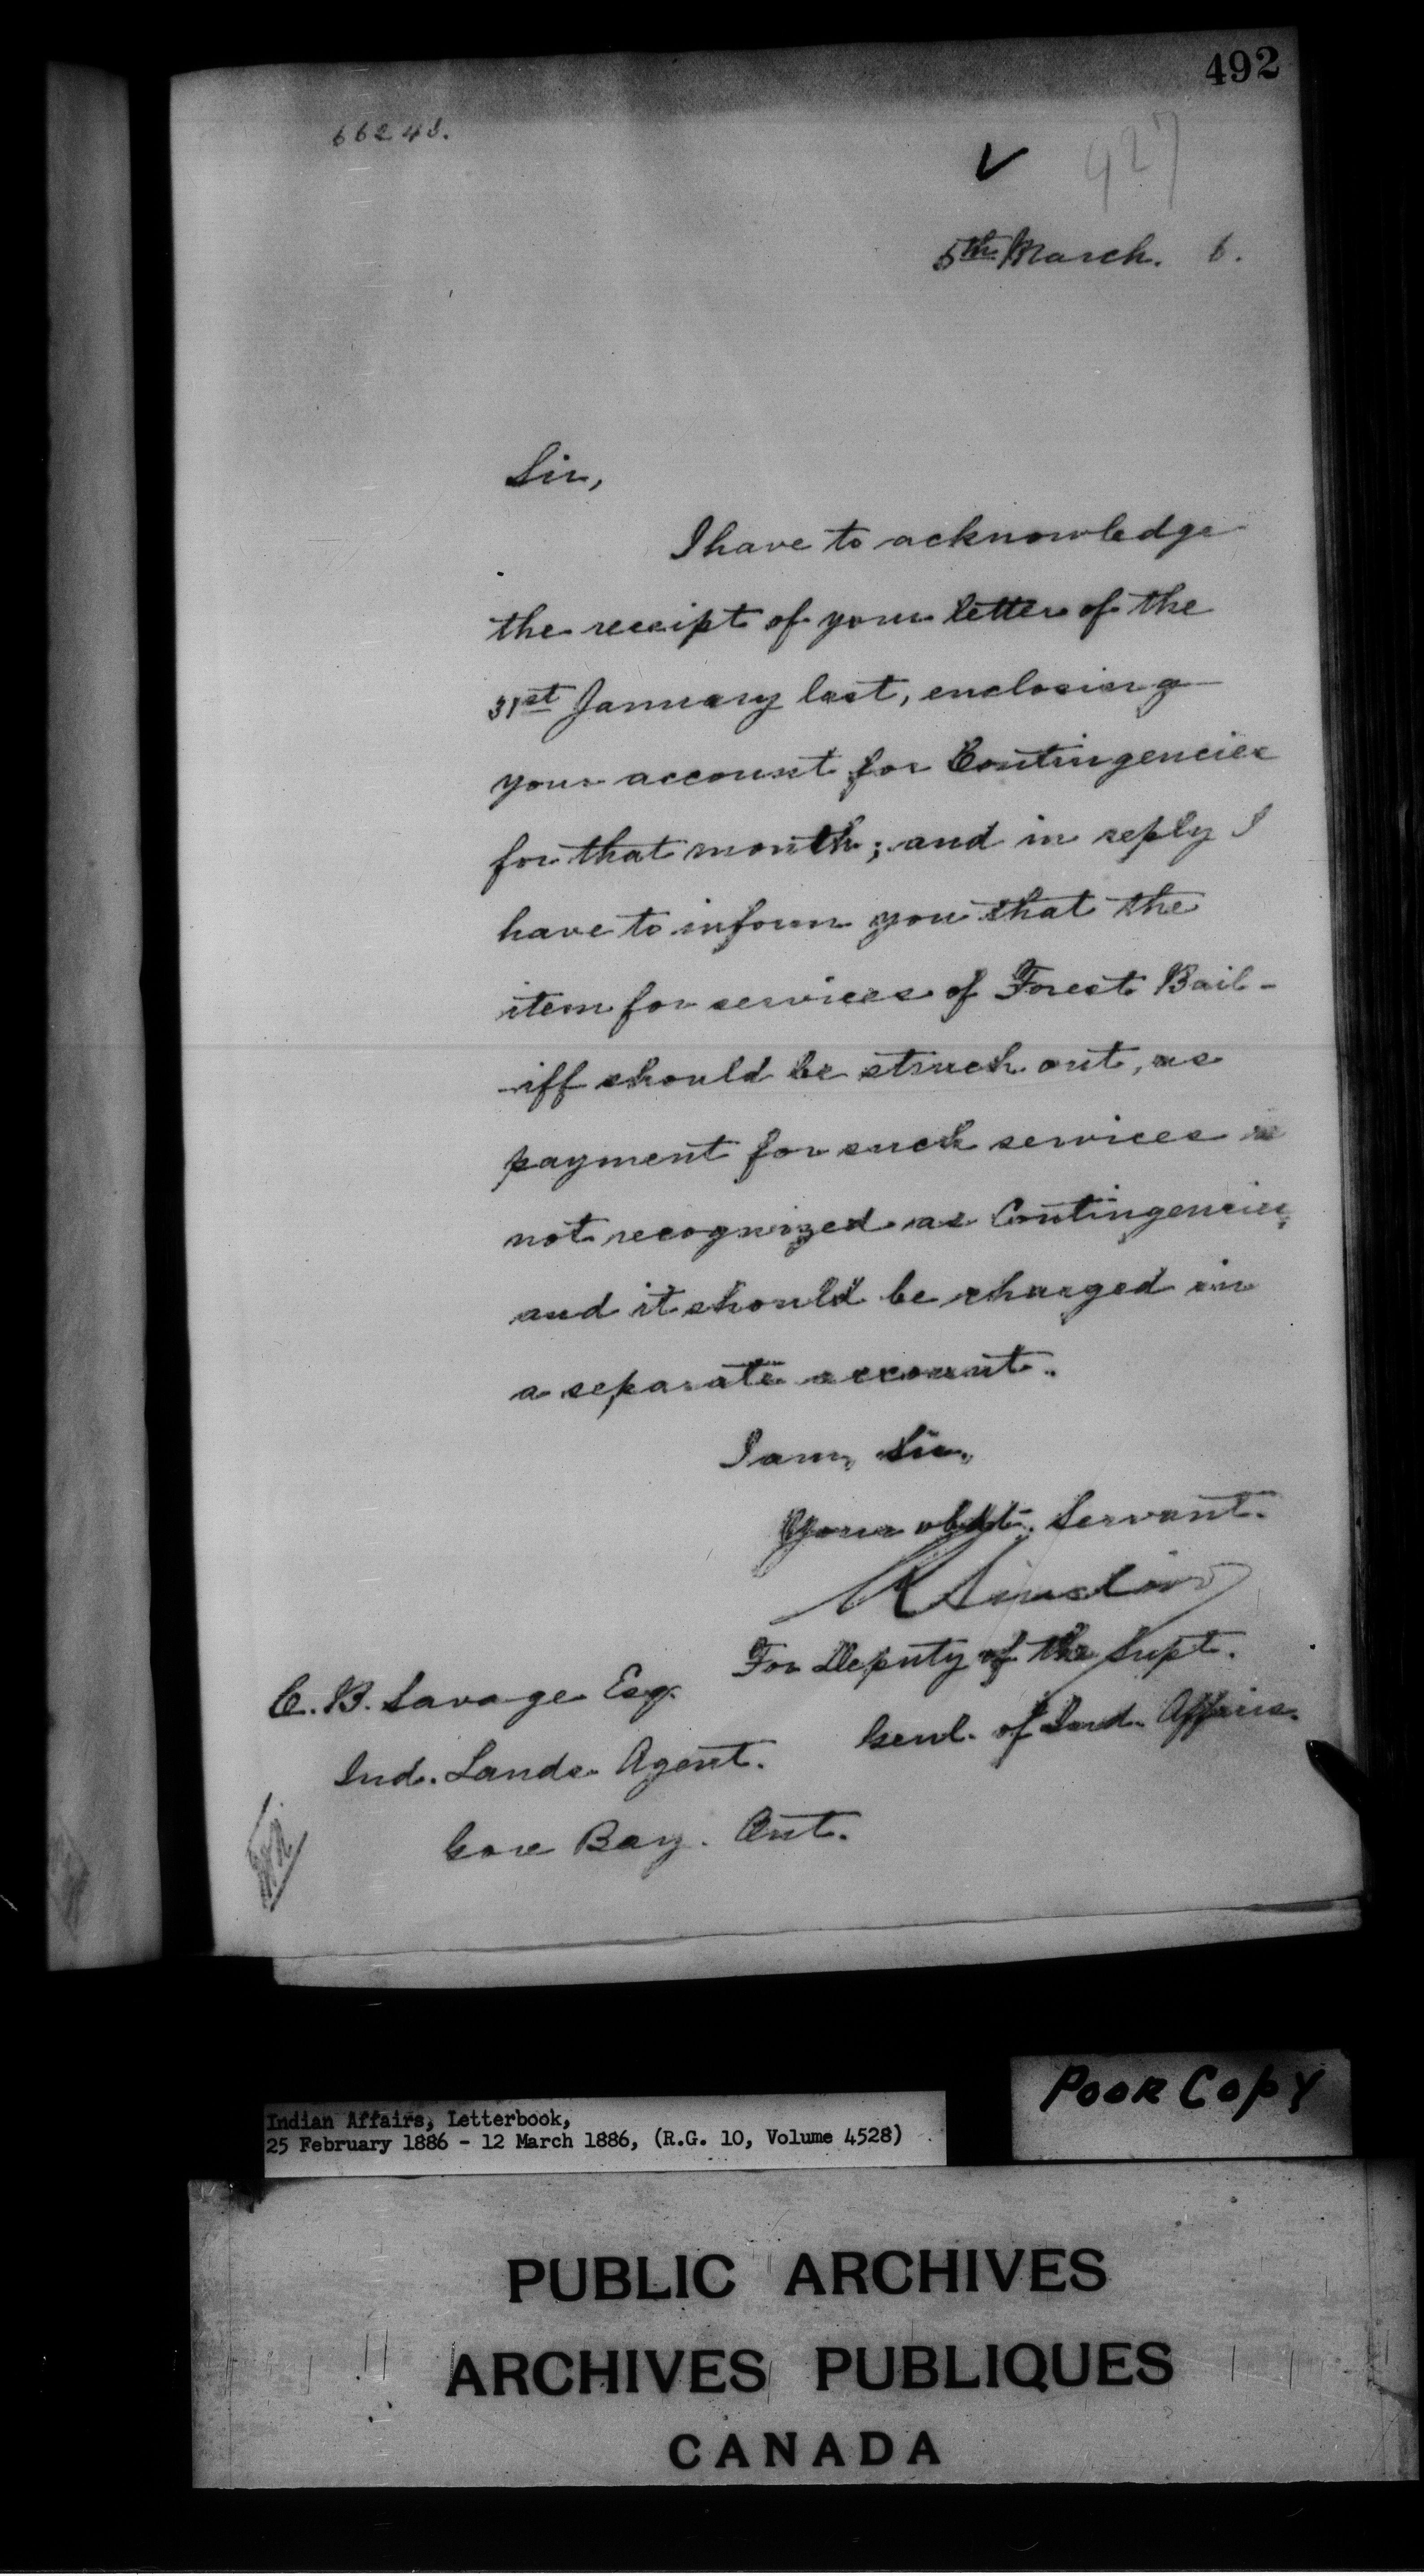 492
66243.
✓ 427
5th March. 6.
Sir,
I have to acknowledge
the receipt of your letter of the
31st January last, enclosing
your account for Contingencies
for that month; and in reply I
have to inform you that the
item for services of Forest Bail-
-iff should be struck out, as
payment for such services is
not recognized as Contingencies,
and it should be charged in
a separate account.
I am, Sir,
Your obdt. Servant.
R Sinclair
For Deputy of the Supt.
Genl. of Ind. Affairs.
C. B. Savage Esq.
Ind. Lands Agent.
Gore Bay. Ont.
Poor Copy
Indian Affairs, Letterbook,
25 February 1886 - 12 March 1886, (R.G. 10, Volume 4528)
PUBLIC ARCHIVES
ARCHIVES PUBLIQUES
CANADA